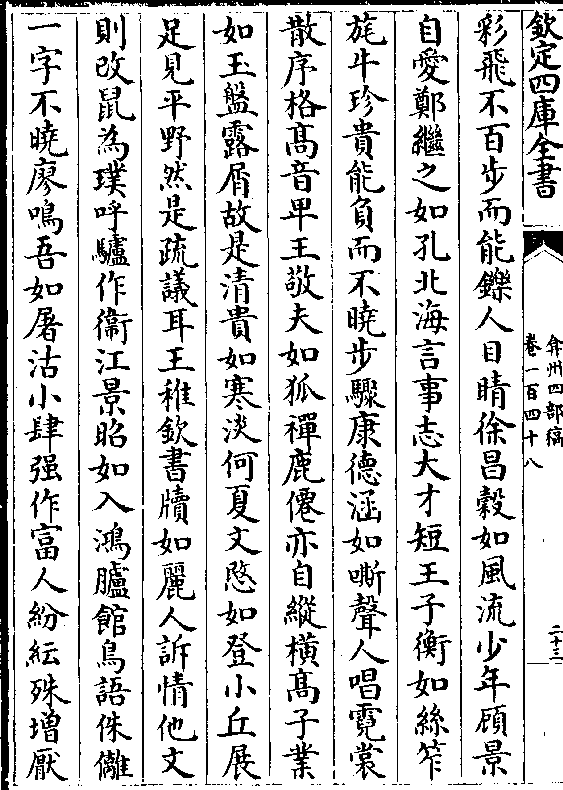 欽定四庫全書
弇州四部稿
卷一百四十八
二十三
彩飛不百步而能鑠人目睛徐昌穀如風流少年顧景
自愛鄭繼之如孔北海言事志大才短王子衡如絲笮
旄牛珍貴能負而不曉步驟康德涵如嘶聲人唱霓裳
散序格髙音卑王敬夫如狐禪鹿僊亦自縱橫髙子業
如玉盤露屑故是清貴如寒淡何夏文愍如登小丘展
足見平野然是疏議耳王稚欽書牘如麗人訴情他文
則改鼠為璞呼驢作衞江景昭如入鴻臚館鳥語侏𠌯
一字不曉廖鳴吾如屠沽小肆强作富人紛紜殊增厭